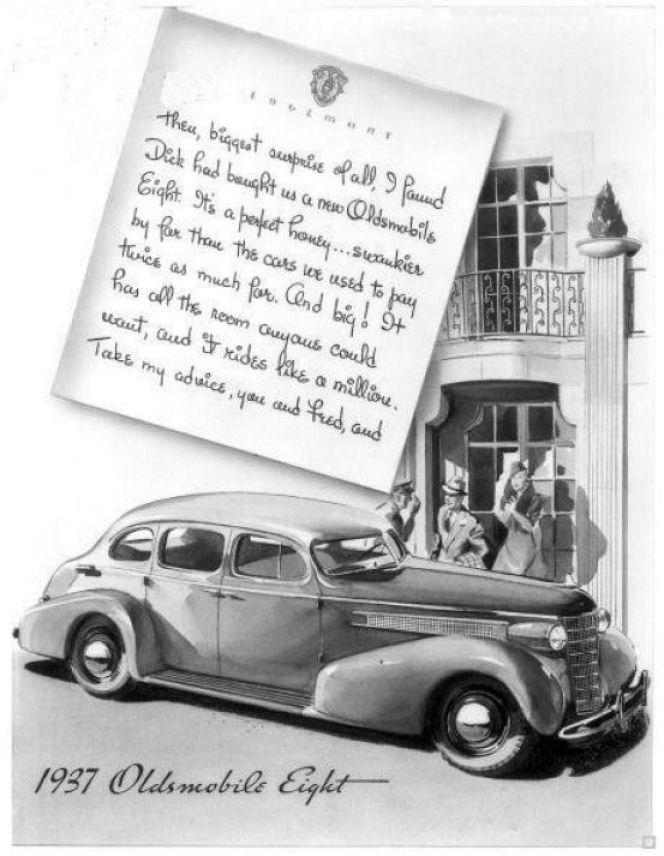 EDGEMONT
Then, biggest surprise of all, I found
Dick had bought us a new Oldsmobile
Eight. It's a perfect honey...swankier
by far than the cars we used to pay
twice as much for. And big! It
has all the room anyone could
want, and it rides like a million.
Take my advice, you and Fred, and
1937 Oldsmobile Eight